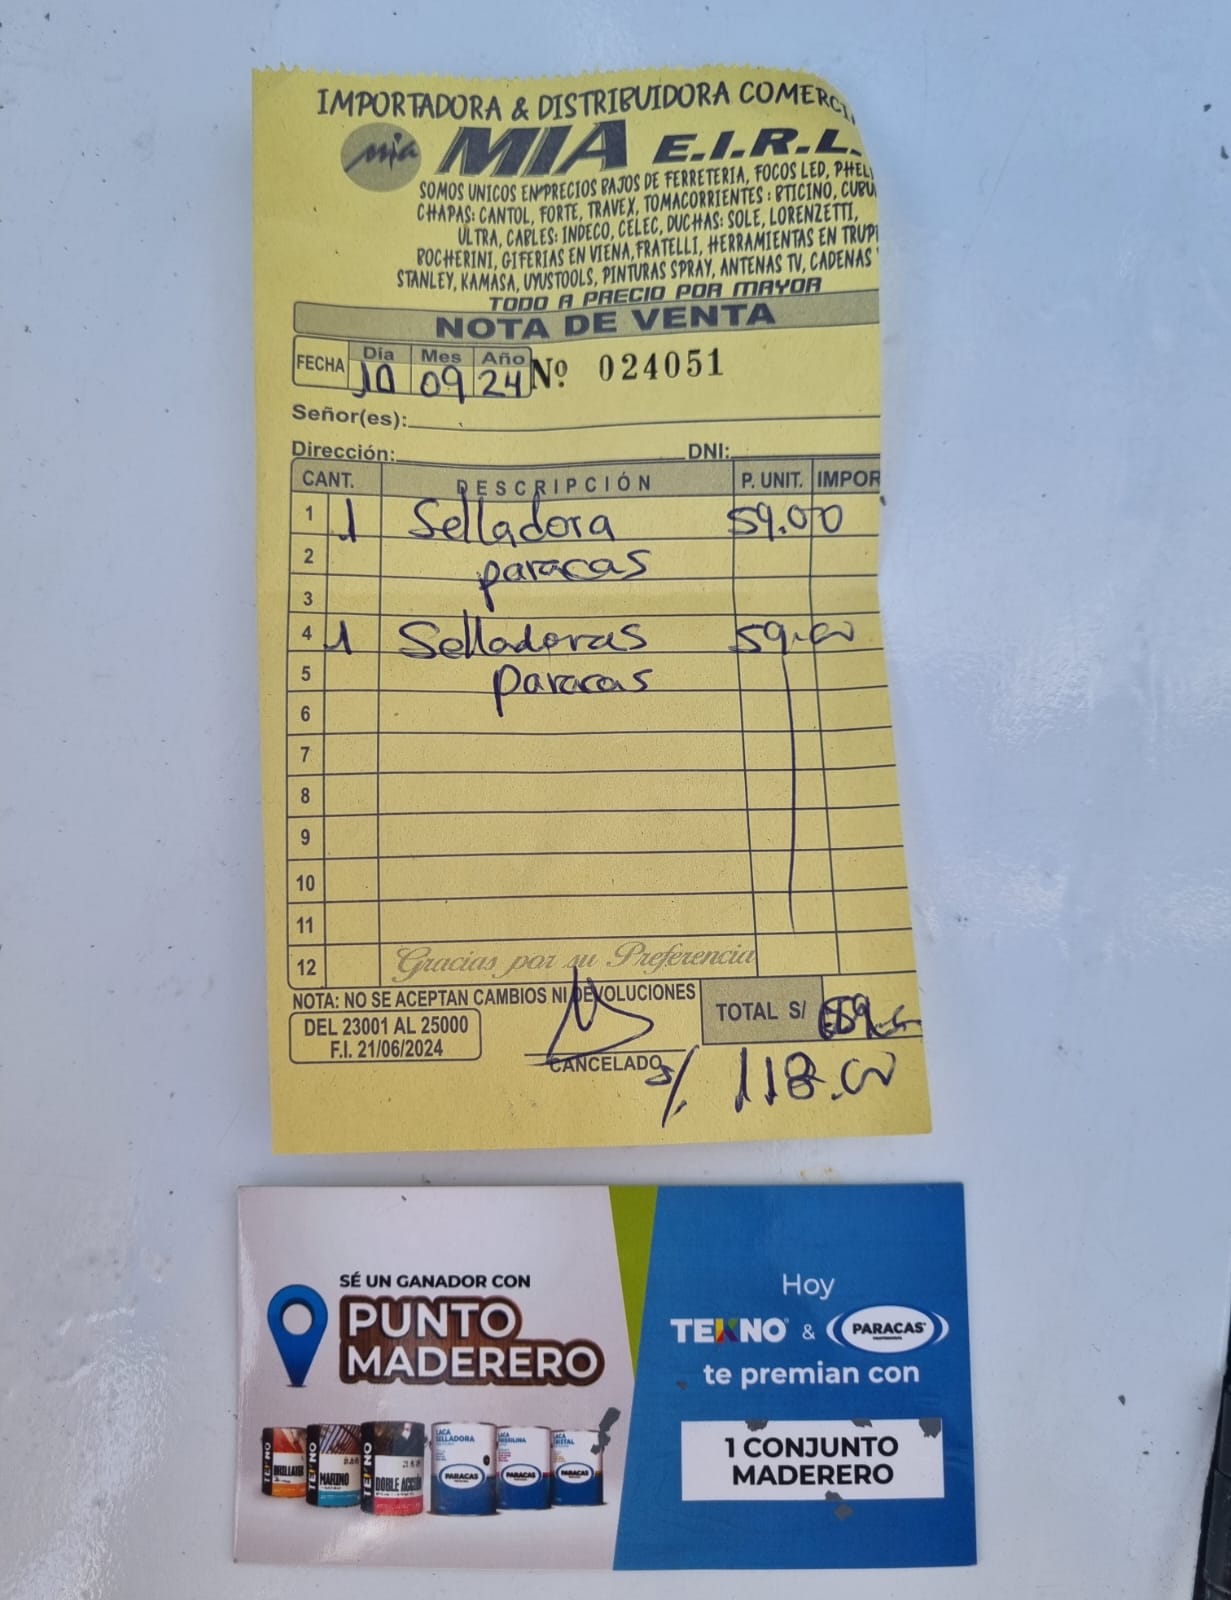 IMPORTADORA & DISTRIBUIDORA COMERCI
mia MIA E.I.R.L.
SOMOS UNICOS EN PRECIOS BAJOS DE FERRETERIA, FOCOS LED, PHEL
CHAPAS: CANTOL, FORTE, TRAVEX, TOMACORRIENTES : BTICINO,
ULTRA, CABLES: INDECO, CELEC, DUCHAS: SOLE, LORENZETTI,
BOCHERINI, GIFERIAS EN VIENA, FRATELLI, HERRAMIENTAS EN TRUP
STANLEY, KAMASA, UYUSTOOLS, PINTURAS SPRAY, ANTENAS TV, CADENAS
TODO A PRECIO POR MAYOR
NOTA DE VENTA
FECHA Día Mes Año Nº 024051
10 09 24
Señor(es):
Dirección: DNI:
CANT. DESCRIPCIÓN P. UNIT. IMPOR
1 1 Selladora 59.00
2 paracas
3
4 1 Selladoras 59.00
5 Paracas
6
7
8
9
10
11
12 Gracias por su Preferencia
NOTA: NO SE ACEPTAN CAMBIOS NI DEVOLUCIONES
DEL 23001 AL 25000 TOTAL S/
F.I. 21/06/2024
CANCELADO S/. 118.00
SÉ UN GANADOR CON
PUNTO
MADERERO
TEKNO
TEKNO MARINO
TEKNO DOBLE ACCIÓN
LACA SELLADORA PARACAS
LACA PARACAS
LACA PARACAS
Hoy
TEKNO & PARACAS
te premian con
1 CONJUNTO
MADERERO